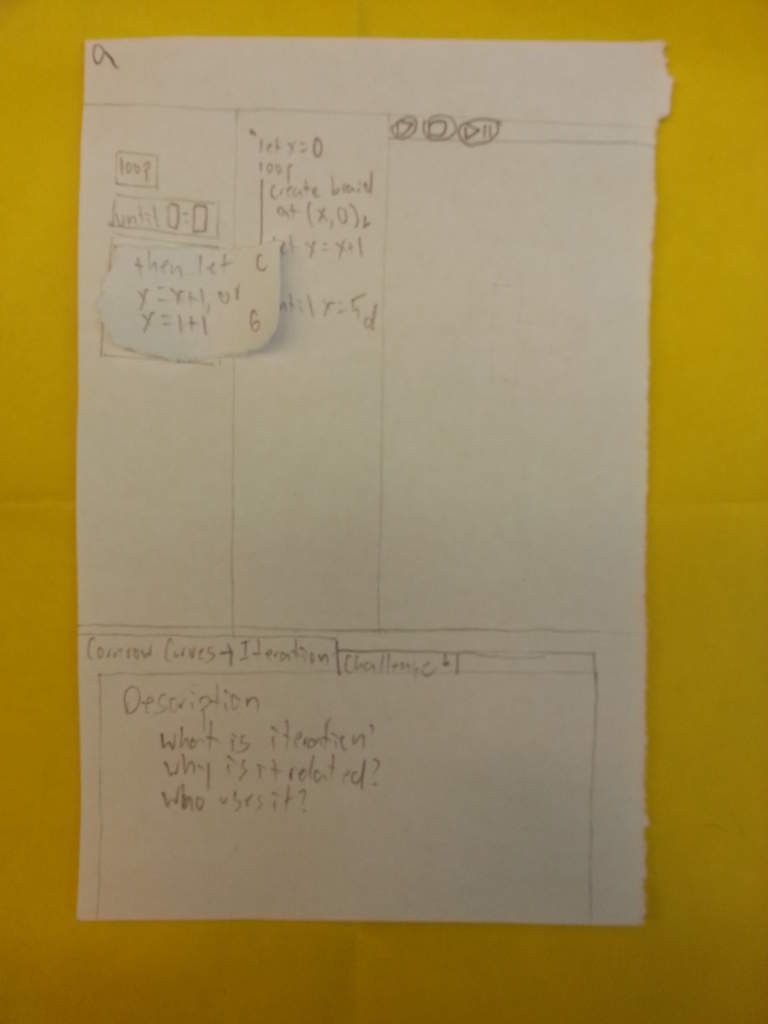 a
loop
until 0=0
then let C
x=x+1, or
y=1+1 6
let x=0
loop
create braid
at (x,0)
let x=x+1
until x=5 d
Cornrow Curves → Iteration
Challenge b
Description
what is iteration?
why is it related?
who uses it?